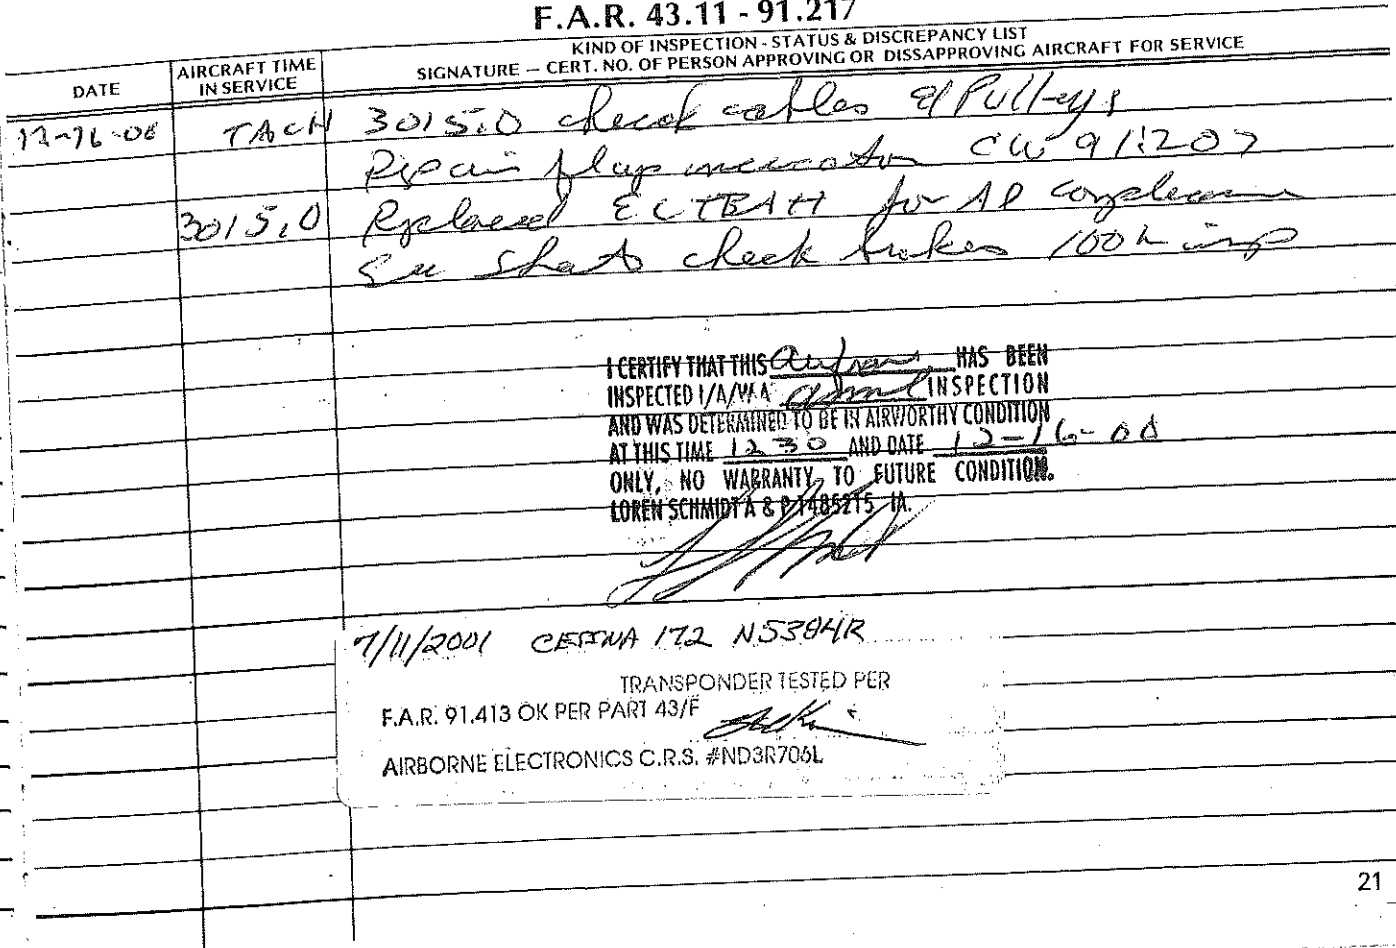 F.A.R. 43.11 - 91.217
KIND OF INSPECTION - STATUS & DISCREPANCY LIST
DATE AIRCRAFT TIME IN SERVICE SIGNATURE — CERT. NO. OF PERSON APPROVING OR DISSAPPROVING AIRCRAFT FOR SERVICE
TACH 3015.0 check cables & Pulleys
Repair flap CW 91:207
3015.0 Replaced for AD
check brakes 100 h insp
I CERTIFY THAT THIS HAS BEEN
INSPECTED I/A/W A INSPECTION
AND WAS DETERMINED TO BE IN AIRWORTHY CONDITION
AT THIS TIME 1230 AND DATE 12-16-00
ONLY, NO WARRANTY TO FUTURE CONDITION.
LOREN SCHMIDT A & P 1485215 IA.
7/11/2001 CESSNA 172 N5384R
TRANSPONDER TESTED PER
F.A.R. 91.413 OK PER PART 43/F
AIRBORNE ELECTRONICS C.R.S. #ND3R706L
21